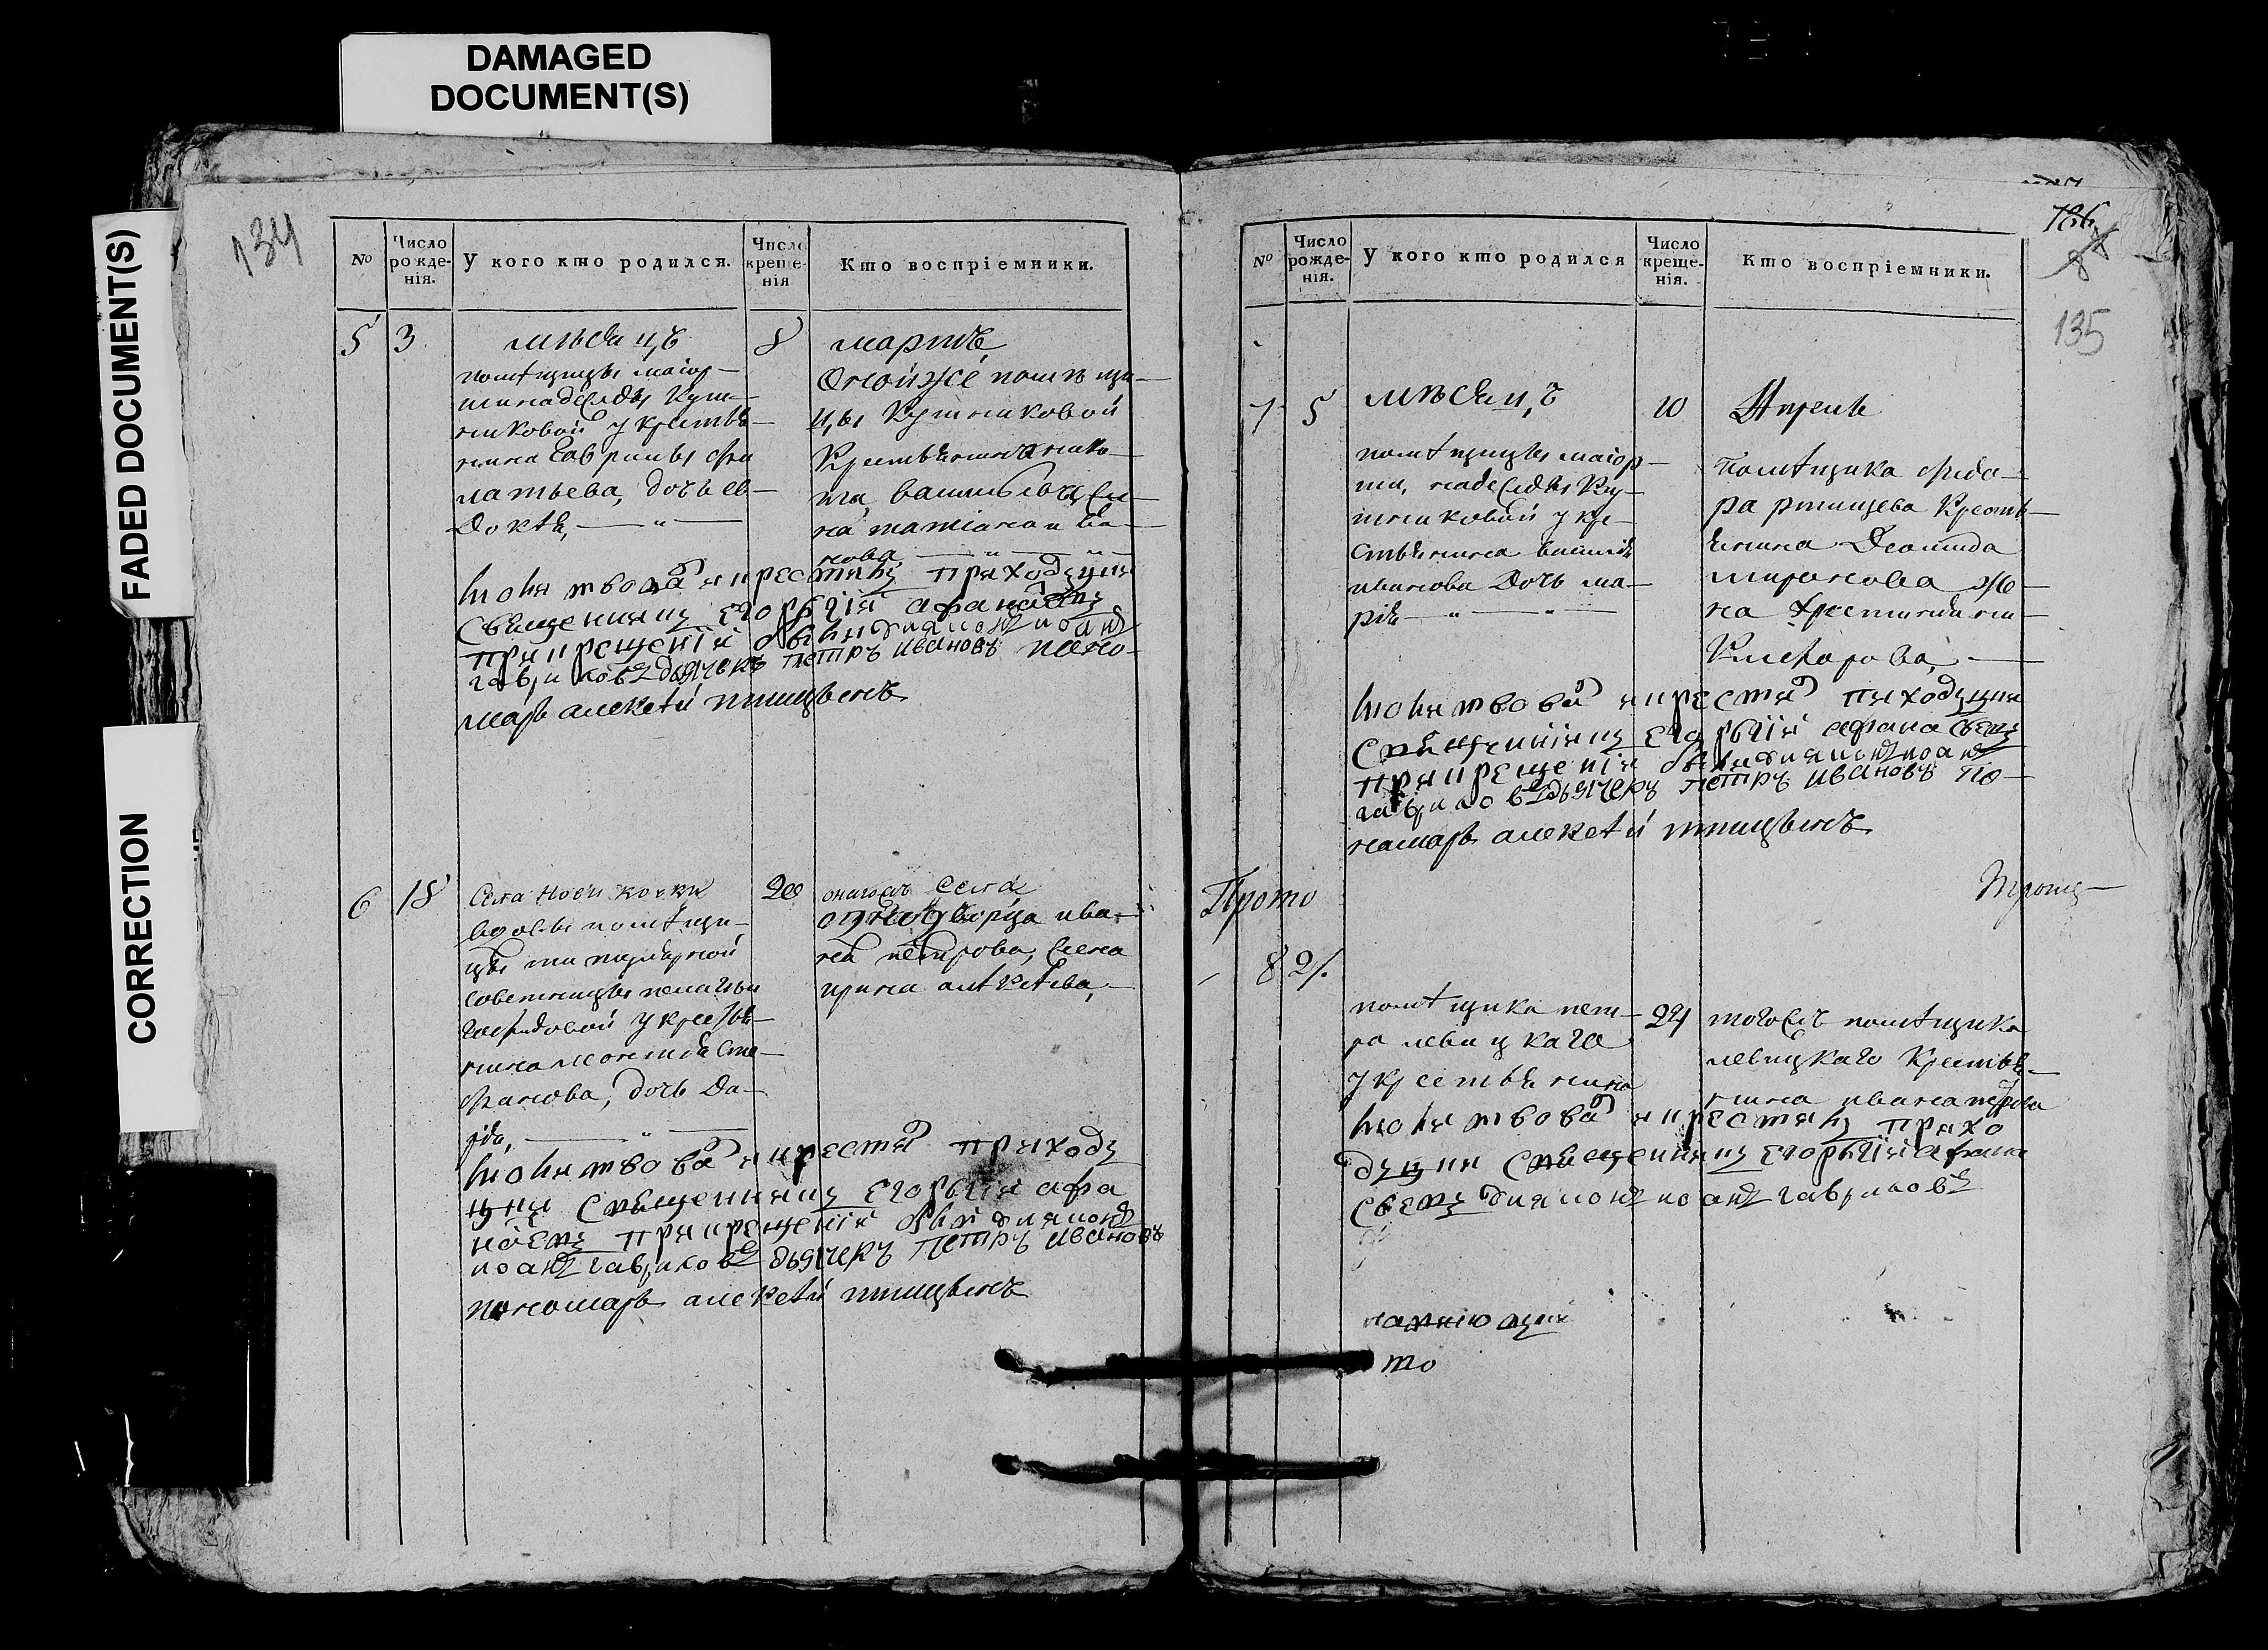 DAMAGED
DOCUMENT(S)
FADED DOCUMENT(S)
CORRECTION
134
№
Число рожде- нія.
У кого кто родился.
Число креще- нія
Кто воспріемники.
5 3 мѣсяцъ 8 мартъ
помѣщицы маіор-
ши надежды Куш-
никовой у крестья-
нина Гаврилы фи
латьева, дочь ев-
докѣя,
Оной же помѣщи-
цы Кушниковой
Крестьянина ники-
ты васильева же-
на татіана ива-
нова
молитвова и крестилъ приходскии
Священникъ Егоргій афанасевъ
при крещеніи былъ диаконъ иоаннъ
гавриловъ дьячекъ петръ ивановъ поно-
марь алексѣй птицынъ
6 18 20
Села
вдовы помѣщи-
цы титулярной
советницы пелагѣи
у крестья-
нина леонтья сте-
фанова, дочь Да-
рья,
онагожъ села
однодворца ива-
на петрова, жена
ирина алексѣева,
молитвова и крестилъ приходс
кии Священникъ Егоргій афа
насевъ при крещеніи былъ диаконъ
иоаннъ гавриловъ дьячекъ петръ ивановъ
пономарь алексѣй птицынъ
186
135
№
Число рожде- нія.
У кого кто родился
Число креще- нія.
Кто воспріемники.
7 5 мѣсяцъ 10 Апрель
помѣщицы маіор-
ши, надежды Ку-
шниковой у кре-
стьянина василія
иванова дочь ма-
рія
помѣщика Федо-
ра ртищева Крестья-
янина Леонида
миронова же-
на Христина ни-
Кифорова,
молитвова и крестилъ приходскии
Священникъ Егоргій афанасевъ
при крещеніи былъ диаконъ иоаннъ
гавриловъ дьячекъ петръ ивановъ по-
намарь алексѣй птицынъ
Прото
8 21. 24
помѣщика пет-
ра левицкаго
у крестьянина
тогожъ помѣщика
левицкаго Крестья-
нина ивана петрова
молитвова и крестилъ прихо
дскии Священникъ Егоргій афана
севъ диаконъ иоаннъ гавриловъ
то